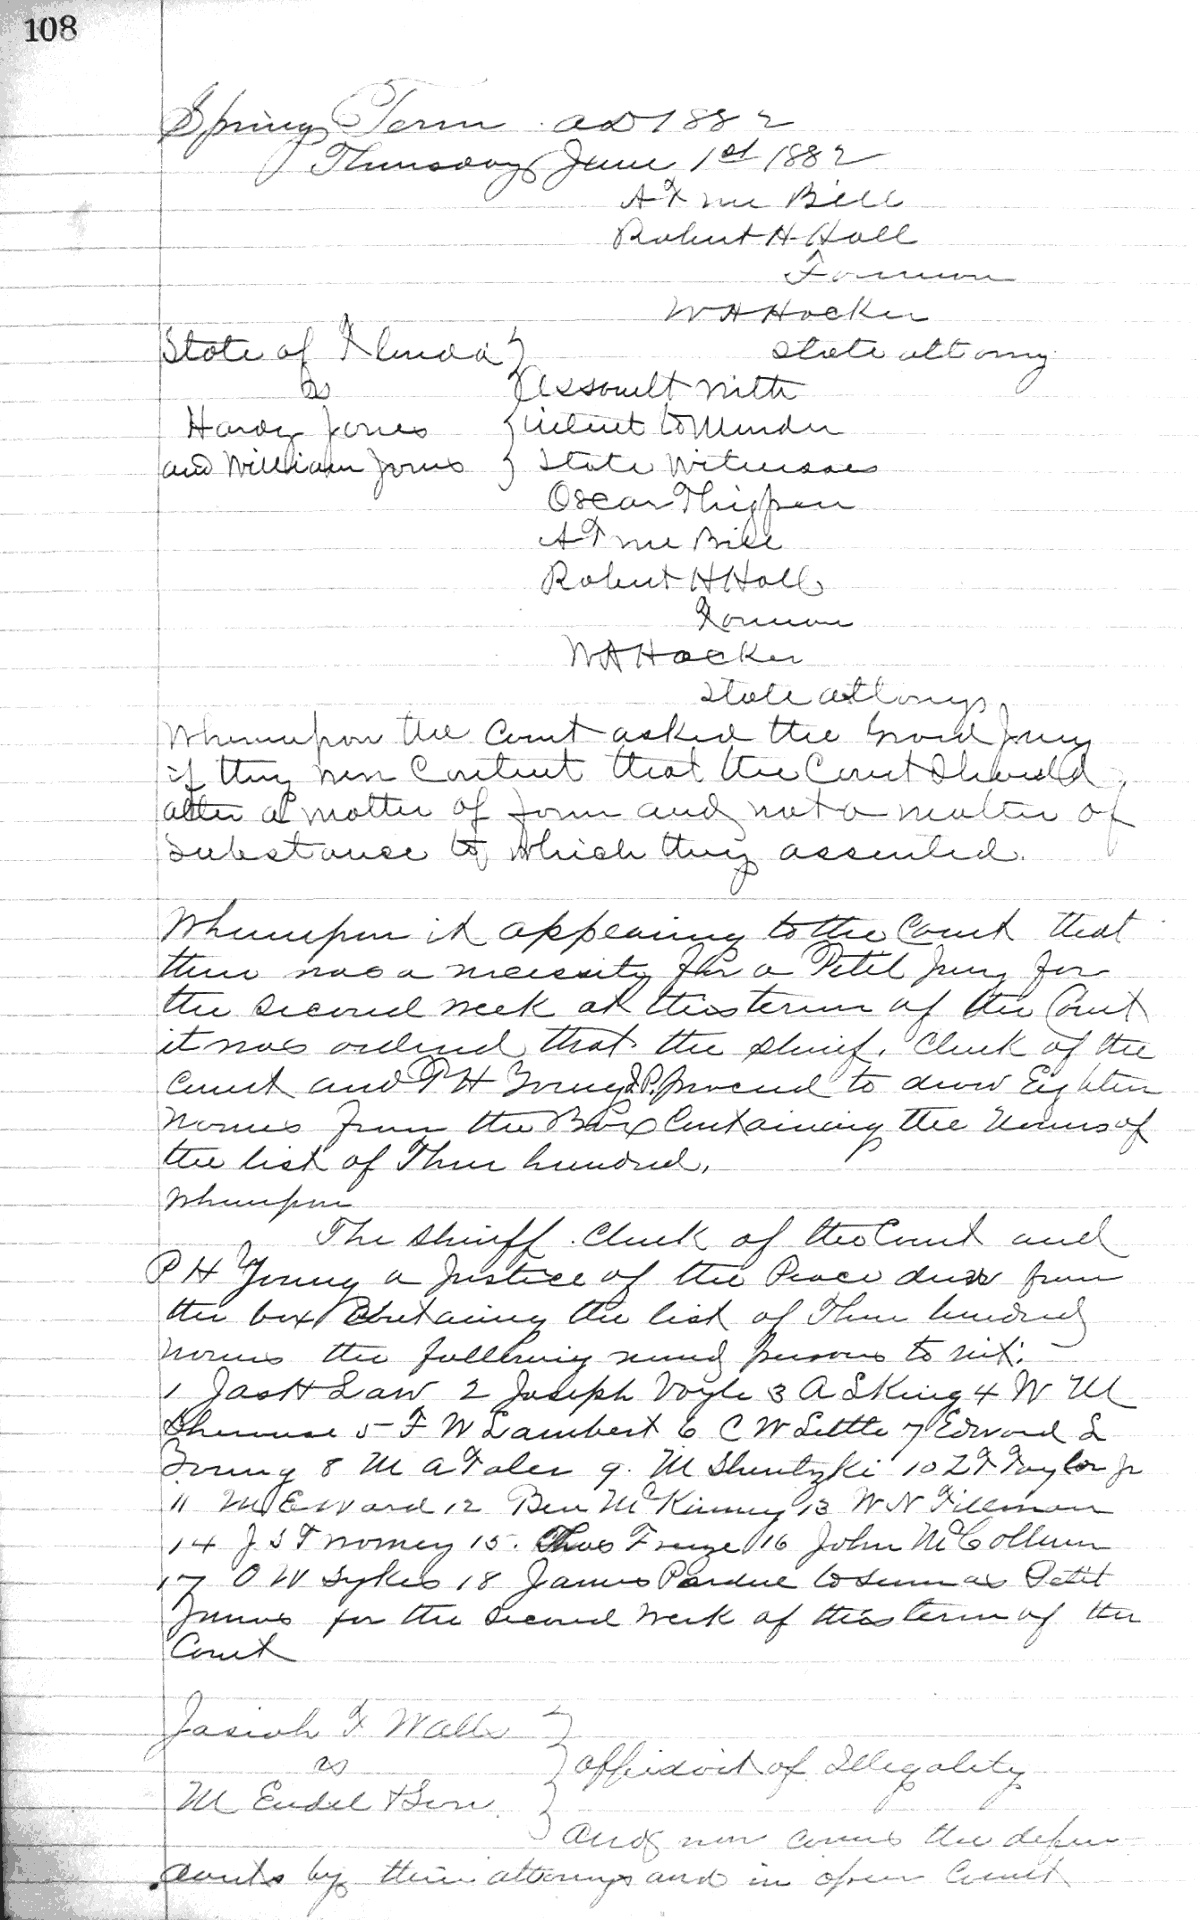 108
Spring Term AD 1882
Thursday June 1st 1882
A True Bill
Robert H Hall
Forman
W A Hocker
State attorny
State of Florida
vs
Assault with
Hardy Jones
intent to Murder
and William Jones
State Witnesses
Oscar Thigpen
A True Bill
Robert H Hall
Forman
W A Hocker
State attorny
Whereupon the Court asked the Grand Jury
if they were Content that the Court Should
alter a matter of form and not a matter of
Substance to which they assented.
Whereupon it appearing to the Court that
there was a necessity for a Petit Jury for
the second week at this term of the Court
it was ordered that the Shrief, Clerk of the
Court and P H Young J.P. proceed to draw Eighten
Names from the Box Containing the Names of
the list of Three hundred,
Whereupon
The Sheriff Clerk of the Court and
P H Young a Justice of the Peace drew from
the box Containing the list of Three hundred
Names the following named persons to wit:
1 Jas H Law 2 Joseph Voyle 3 A L King 4 W M
Sherouse 5 F W Lambert 6 C W Settle 7 Edward L
Young 8 M A 9. M 10 L F Taylor Jr
11 M E Ward 12 Ben McKinney 13 W N Tillman
14 J S 15. Chas 16 John McCollum
17 O W Sykes 18 James Pardue to serve as Petit
Jurors for the second week of this term of the
Court
Josiah T Walls
vs
affidavit of Illegality
M Endel & Son
And now comes the defen
dants by their attorneys and in open Court